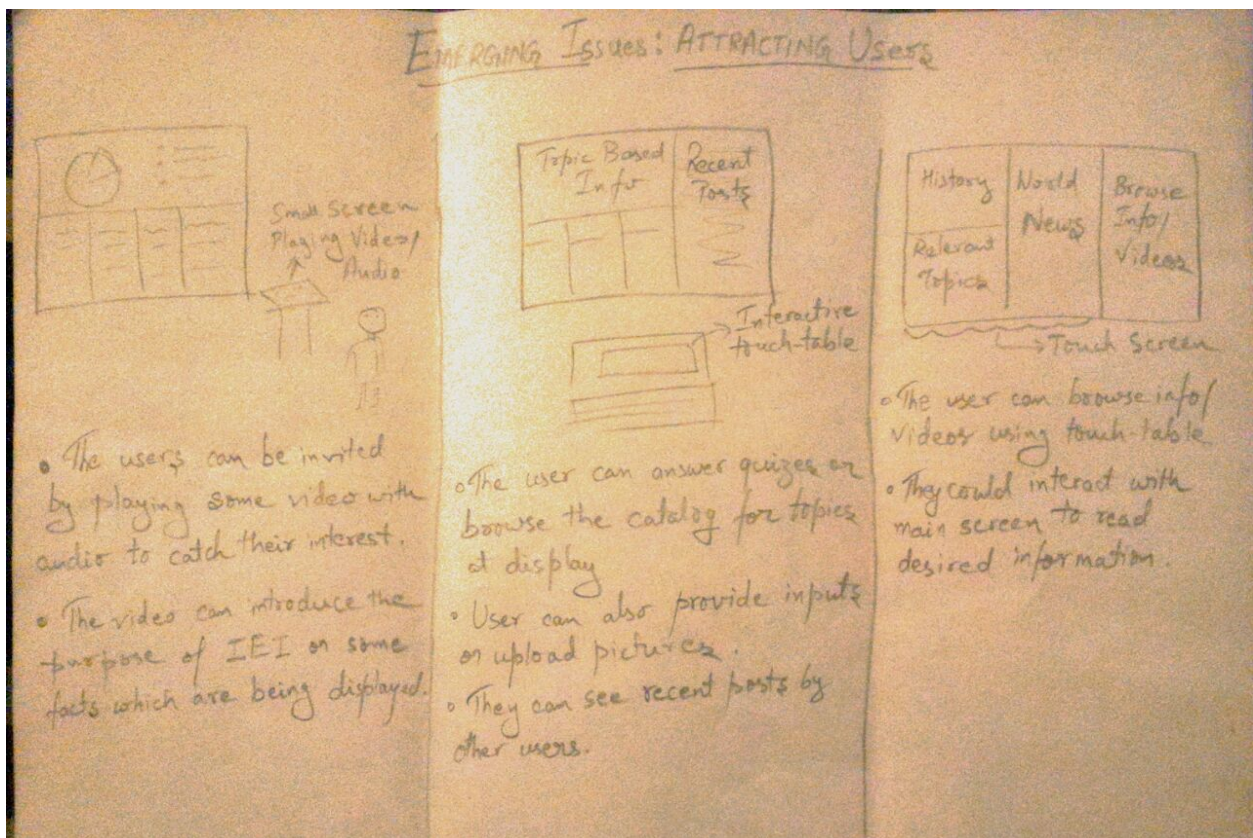 EMERGING ISSUES: ATTRACTING USERS
Small Screen
Playing Video/
Audio
• The users can be invited
by playing some video with
audio to catch their interest.
• The video can introduce the
purpose of IEI or some
facts which are being displayed.
Topic Based
Info
Recent
Posts
Interactive
touch-table
• The user can answer quizes or
browse the catalog for topics
at display
• User can also provide inputs
or upload pictures.
• They can see recent posts by
other users.
History
Relevant
Topics
World
News
Browse
Info/
Videos
Touch Screen
• The user can browse info/
videos using touch-table
• They could interact with
main screen to read
desired information.